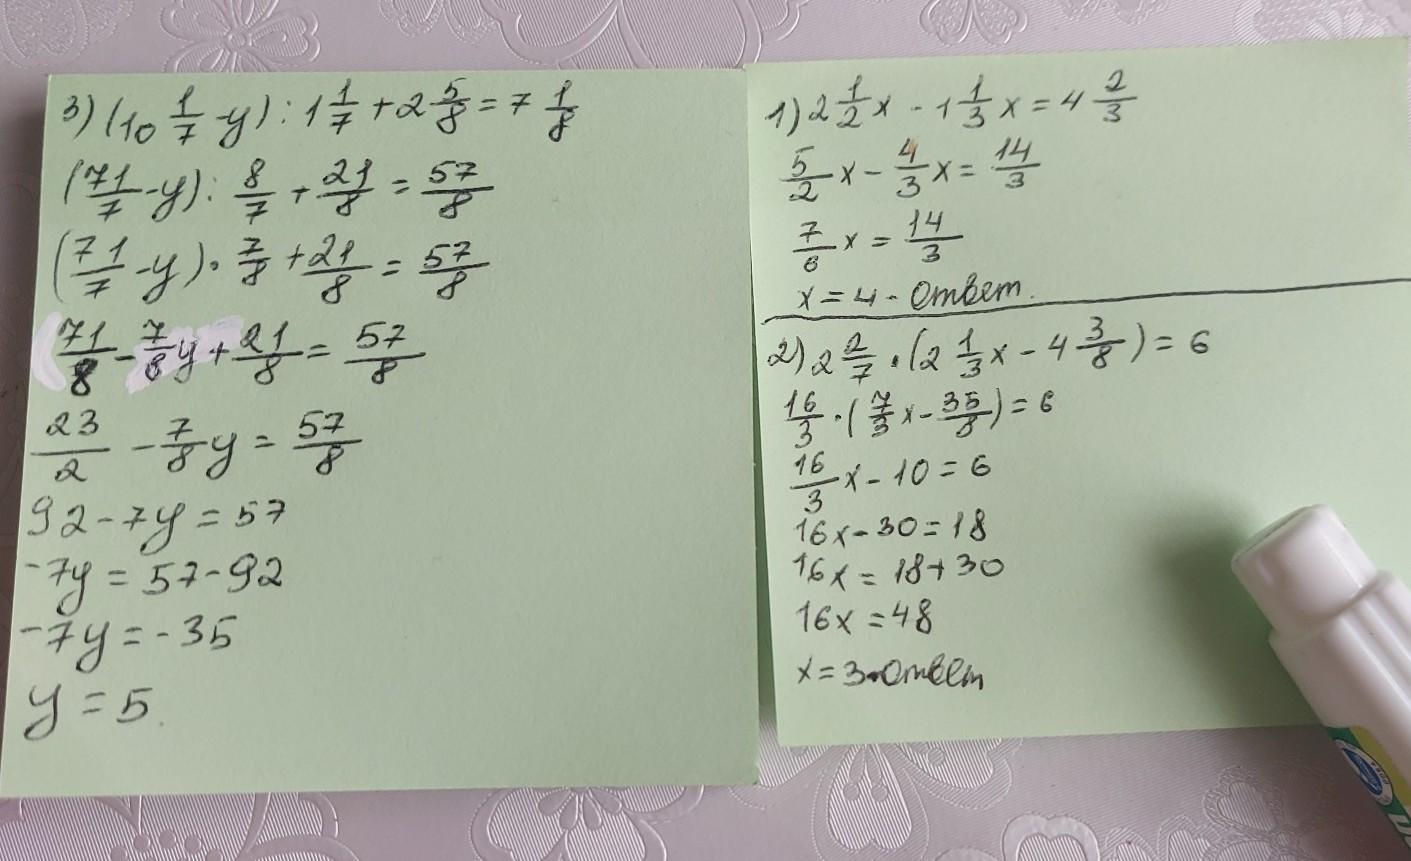 3) (10 1/7 - y) : 1 1/7 + 2 5/8 = 7 1/8
(71/7 - y) : 8/7 + 21/8 = 57/8
(71/7 - y) · 7/8 + 21/8 = 57/8
71/8 - 7/8 y + 21/8 = 57/8
23/2 - 7/8 y = 57/8
92 - 7y = 57
-7y = 57 - 92
-7y = -35
y = 5.
1) 2 1/2 x - 1 1/3 x = 4 2/3
5/2 x - 4/3 x = 14/3
7/6 x = 14/3
x = 4 - ответ.
2) 2 2/7 · (2 1/3 x - 4 3/8) = 6
16/3 · (7/3 x - 35/8) = 6
16/3 x - 10 = 6
16x - 30 = 18
16x = 18 + 30
16x = 48
x = 3 - ответ